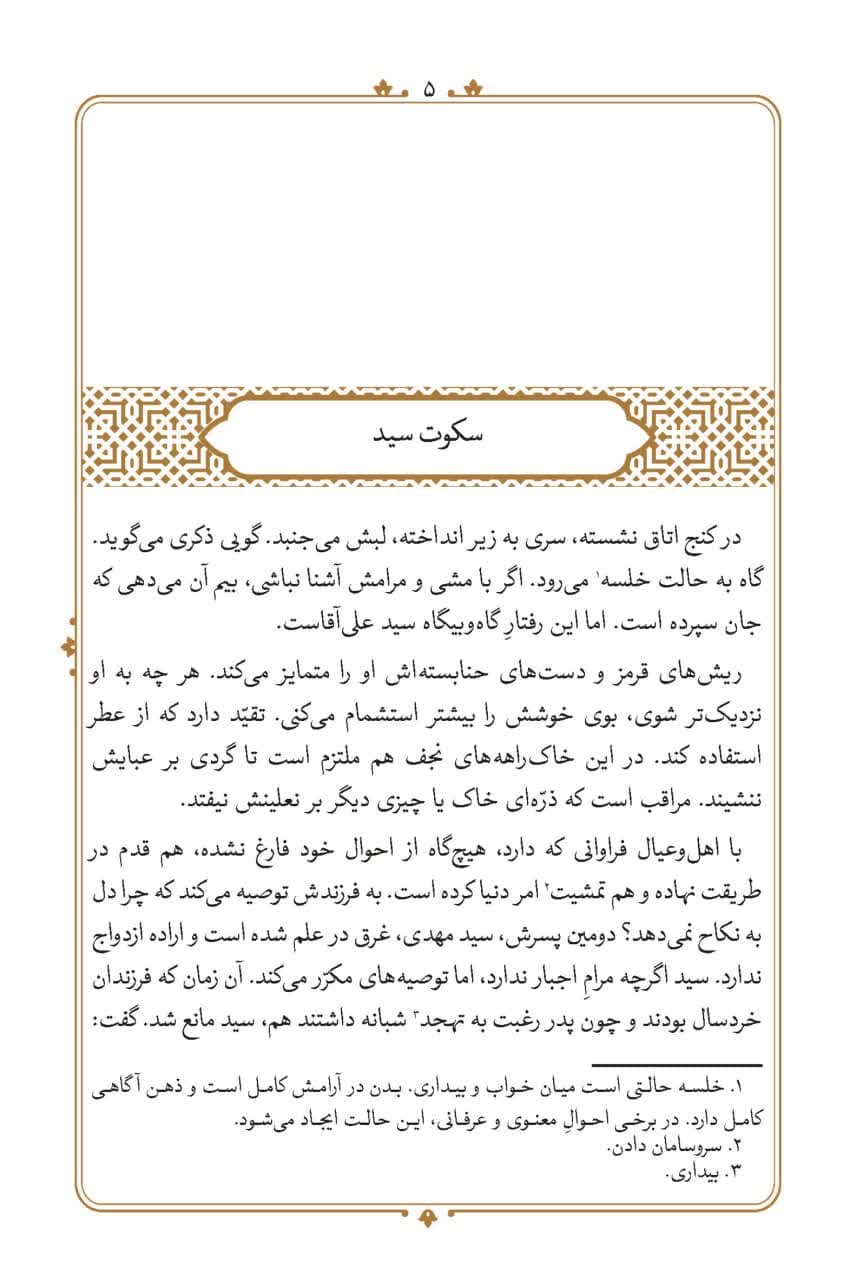 ۵
سکوت سید
در کنج اتاق نشسته، سری به زیر انداخته، لبش می‌جنبد. گویی ذکری می‌گوید.
گاه به حالت خلسه۱ می‌رود. اگر با مشی و مرامش آشنا نباشی، بیم آن می‌دهی که
جان سپرده است. اما این رفتارِ گاه‌وبیگاه سید علی‌آقاست.
ریش‌های قرمز و دست‌های حنابسته‌اش او را متمایز می‌کند. هر چه به او
نزدیک‌تر شوی، بوی خوشش را بیشتر استشمام می‌کنی. تقیّد دارد که از عطر
استفاده کند. در این خاک‌راهه‌های نجف هم ملتزم است تا گردی بر عبایش
ننشیند. مراقب است که ذرّه‌ای خاک یا چیزی دیگر بر نعلینش نیفتد.
با اهل‌وعیال فراوانی که دارد، هیچ‌گاه از احوال خود فارغ نشده، هم قدم در
طریقت نهاده و هم تمشیت۲ امر دنیا کرده است. به فرزندش توصیه می‌کند که چرا دل
به نکاح نمی‌دهد؟ دومین پسرش، سید مهدی، غرق در علم شده است و اراده ازدواج
ندارد. سید اگرچه مرامِ اجبار ندارد، اما توصیه‌های مکرّر می‌کند. آن زمان که فرزندان
خردسال بودند و چون پدر رغبت به تهجد۳ شبانه داشتند هم، سید مانع شد. گفت:
۱. خلسه حالتی است میان خواب و بیداری. بدن در آرامش کامل است و ذهن آگاهی
کامل دارد. در برخی احوالِ معنوی و عرفانی، این حالت ایجاد می‌شود.
۲. سروسامان دادن.
۳. بیداری.